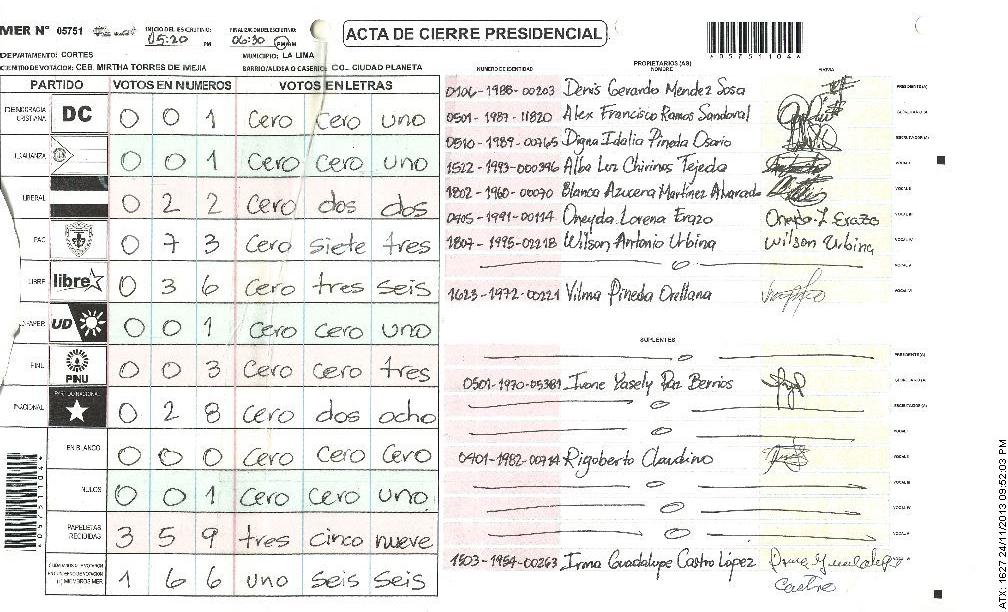 MER N° 05751 INICIO DEL ESCRUTINIO: 05:20 PM FINALIZACION DEL ESCRUTINIO: 06:30 PM
ACTA DE CIERRE PRESIDENCIAL
*05751104*
DEPARTAMENTO: CORTES MUNICIPIO: LA LIMA
CENTRO DE VOTACION: CEB. MIRTHA TORRES DE MEJIA BARRIO/ALDEA O CASERIO: CO.. CIUDAD PLANETA
PARTIDO VOTOS EN NUMEROS VOTOS EN LETRAS
DEMOCRACIA CRISTIANA DC 0 0 1 Cero Cero uno
ALIANZA 0 0 1 Cero Cero uno
LIBERAL 0 2 2 Cero dos dos
PAC 0 7 3 Cero siete tres
LIBRE libre 0 3 6 Cero tres seis
UD 0 0 1 Cero Cero uno
PINU PINU 0 0 3 Cero Cero tres
NACIONAL PARTIDO NACIONAL 0 2 8 Cero dos ocho
EN BLANCO 0 0 0 Cero Cero Cero
NULOS 0 0 1 Cero Cero uno
PAPELETAS RECIBIDAS 3 5 9 tres cinco nueve
1 6 6 uno seis seis
*05751104*
NUMERO DE IDENTIDAD PROPIETARIOS (AS) NOMBRE FIRMA
0106-1988-00203 Denis Gerardo Mendez Sosa PRESIDENTE(A)
0501-1987-11820 Alex Francisco Ramos Sandoval SECRETARIO(A)
0510-1989-00765 Digna Idalia Pineda Osorio ESCRUTADOR(A)
1522-1993-000396 Alba Luz Chirinos Tejeda VOCAL I
1802-1960-00070 Blanca Azucera Martinez Alvarado VOCAL II
0405-1991-00114 Oneyda Lorena Erazo Oneyda L Erazo VOCAL III
1807-1995-02218 Wilson Antonio Urbina Wilson Urbina VOCAL IV
VOCAL V
1623-1972-00221 Vilma Pineda Orellana VOCAL VI
SUPLENTES
PRESIDENTE(A)
0501-1970-05389 Ivone Yasely Paz Berrios SECRETARIO(A)
ESCRUTADOR(A)
VOCAL I
0401-1982-00714 Rigoberto Claudino VOCAL II
VOCAL III
VOCAL IV
VOCAL V
1503-1954-00263 Irma Guadalupe Castro López
Castro
ATX: 1627 24/11/2013 09:52:03 PM